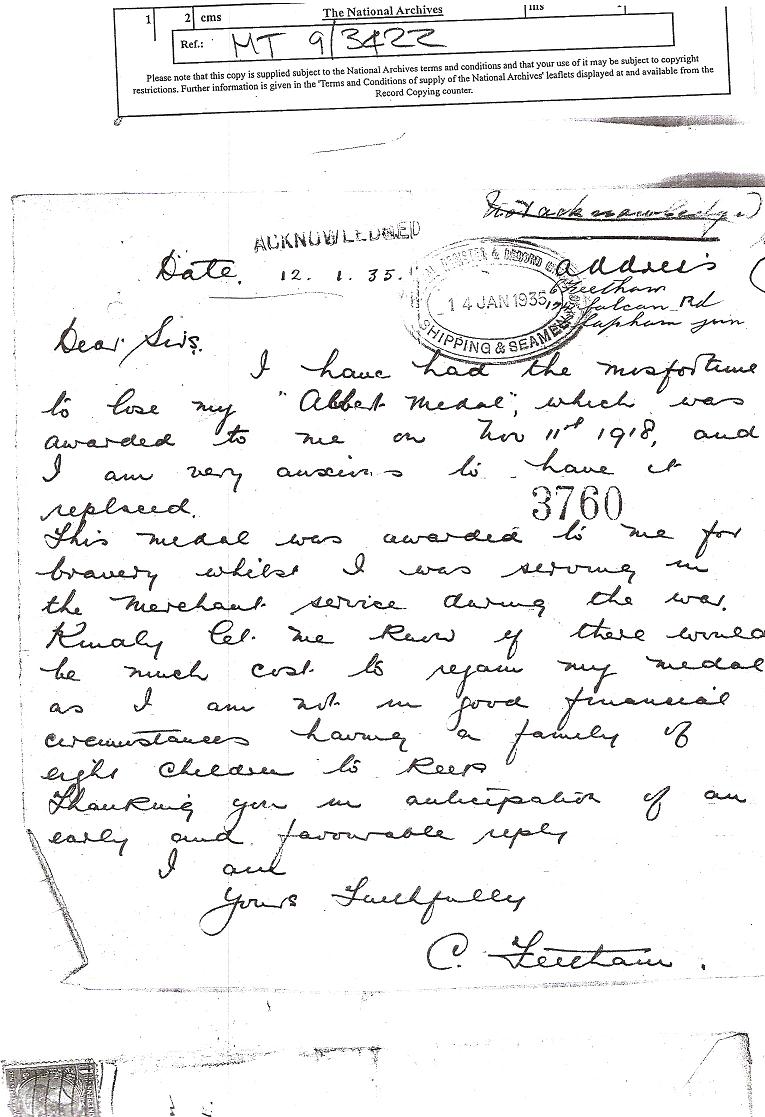 1 2 cms The National Archives ins
Ref.: MT 9/3422
Please note that this copy is supplied subject to the National Archives terms and conditions and that your use of it may be subject to copyright
restrictions. Further information is given in the 'Terms and Conditions of supply of the National Archives' leaflets displayed at and available from the
Record Copying counter.
Not acknowledged
ACKNOWLEDGED
Date. 12. 1. 35.
Address
C Feetham
Falcon Rd
Clapham Junn
& RECORD
14 JAN 1935
SHIPPING & SEAMEN
Dear Sirs.
I have had the misfortune
to lose my "Albert Medal", which was
awarded to me on Nov 11th 1918, and
I am very anxious to have it
replaced.
3760
This medal was awarded to me for
bravery whilst I was serving in
the Merchant service during the war.
Kindly let me know if there would
be much cost to regain my medal
as I am not in good financial
circumstances having a family of
eight children to keep
Thanking you in anticipation of an
early and favourable reply
I am
Yours Faithfully
C. Feetham.